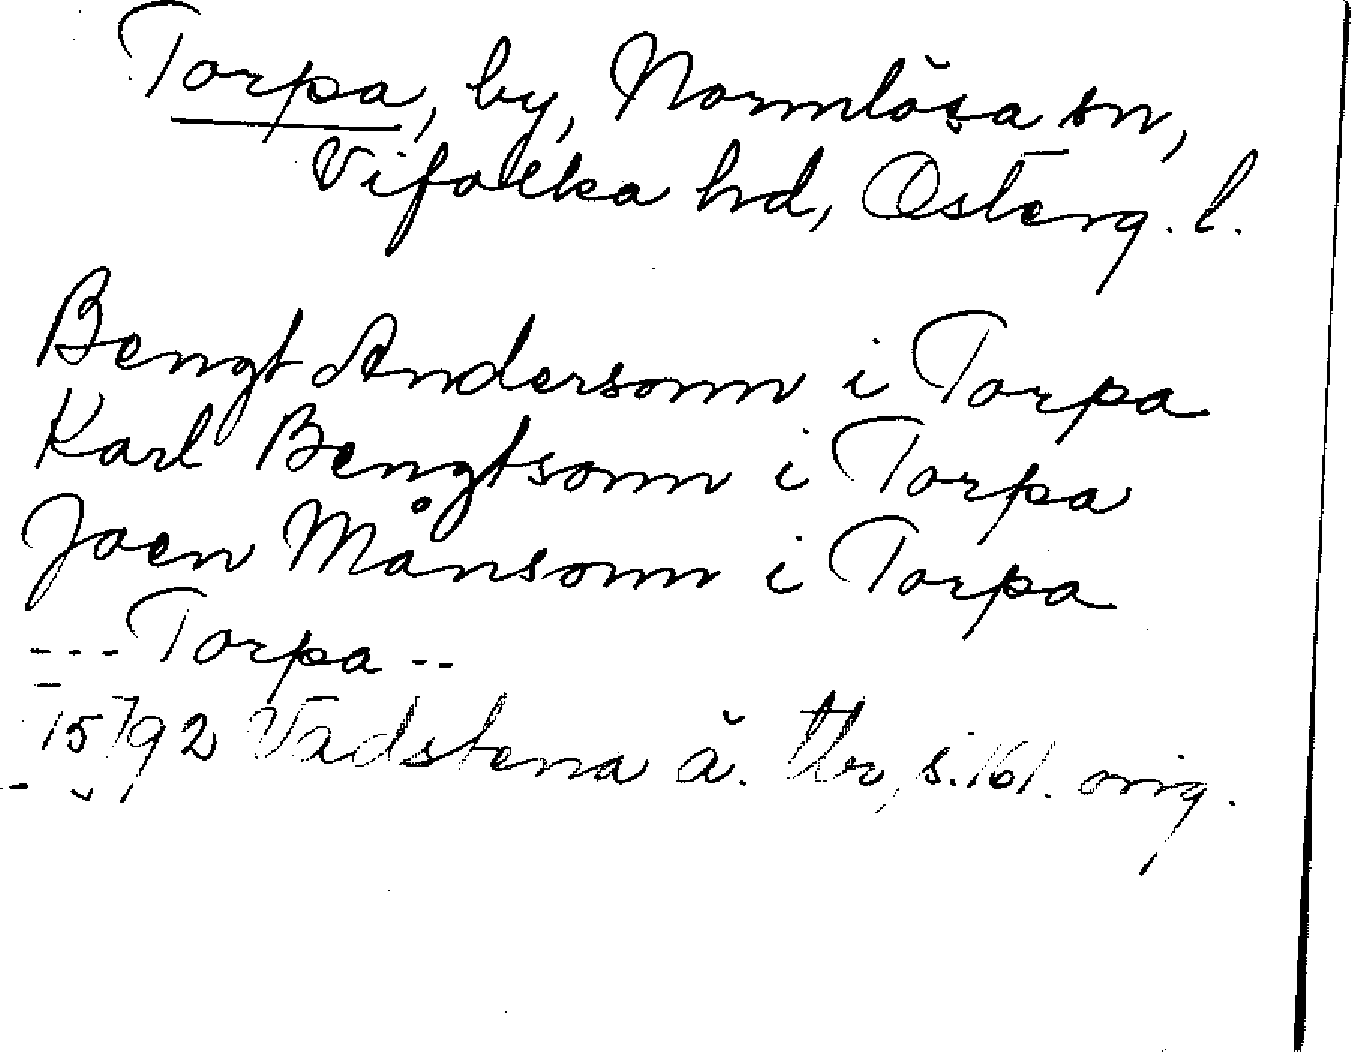 Torpa, by, Normlösa sn,
Vifolka hd, Österg. l.
Bengt Andersonn i Torpa
Karl Bengtsonn i Torpa
Joen Månsonn i Torpa
--- Torpa --
15/7 92 Vadstena ä. tbr, s. 161. orig.